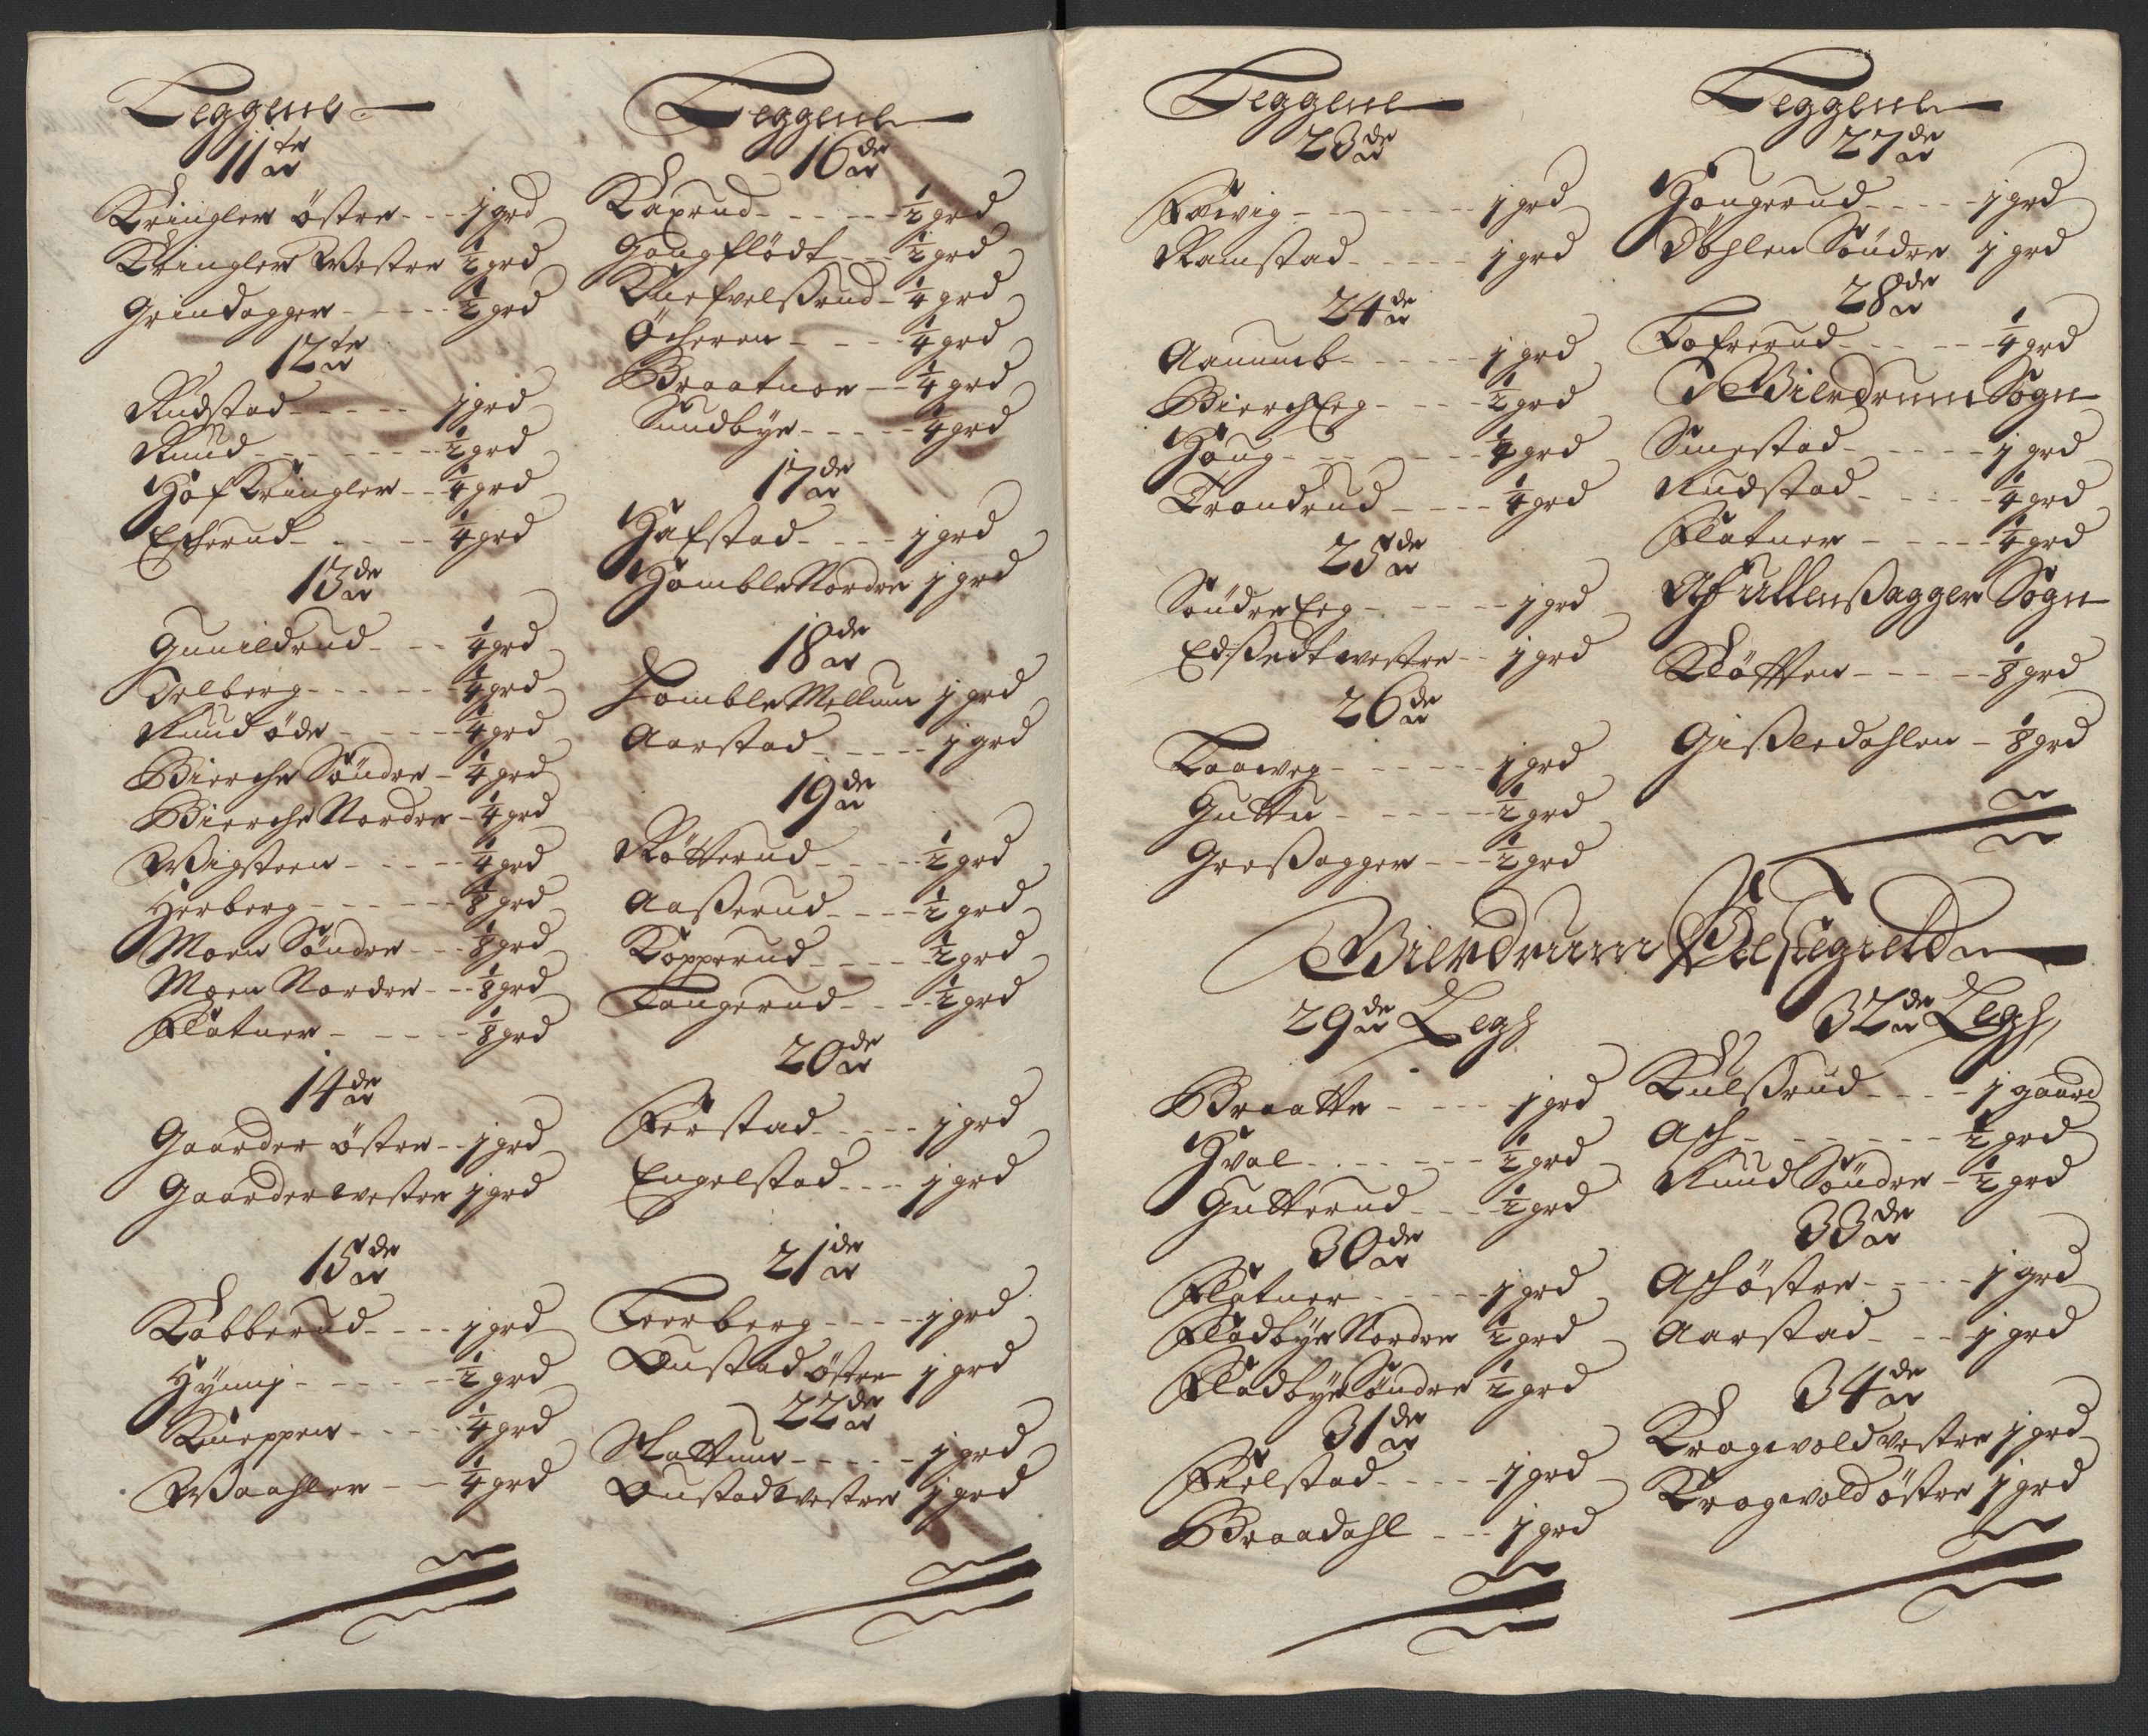 Leggene
11te
Kringler östre - - - 1 grd
Kringler Westre ½ grd
Grindagger - - - - ½ grd
12te
Rudstad - - - - - 1 grd
Ruud - - - - - - ½ grd
Hof Kringler - - ¼ grd
Escherud - - - - ¼ grd
13de
Gunildrud - - - ¼ grd
Delberg - - - - - ¼ grd
Ruud öde - - - - ¼ grd
Bierche Söndre - ¼ grd
Bierche Nordre - ¼ grd
Wigsteen - - - - ¼ grd
Herberg - - - - - ⅛ grd
Moen Söndre - - ⅛ grd
Moen Nordre - - ⅛ grd
Flatner - - - - - ⅛ grd
14de
Gaarder östre - - 1 grd
Gaarder westre 1 grd
15de
Kabberud - - - - 1 grd
Hynnj - - - - - ½ grd
Kneppen - - - - ¼ grd
Waahler - - ¼ grd
Leggene
16de
Kaxrud - - - - - ½ grd
Hougflödt - - - ½ grd
Knefvelsrud - ¼ grd
Ocheren - - - - ¼ grd
Braatnee - - ¼ grd
Sundbye - - - - - ¼ grd
17de
Hafstad - - - - 1 grd
Homble Nordre 1 grd
18de
Homble Mellum 1 grd
Aarstad - - - - - 1 grd
19de
Rötterud - - - - - ½ grd
Aasserud - - - - ½ grd
Kopperud - - - - ½ grd
Laugerud - - - ½ grd
20de
Ferstad - - - - - 1 grd
Engelstad - - - 1 grd
21de
Leerberg - - - - - 1 grd
Dustad östre 1 grd
22de
Slattum - - - - - 1 grd
Dustad westre 1 grd
Leggene
23de
Fæwig - - - - - - - 1 grd
Ramstad - - - - - 1 grd
24de
Aanumb - - - - - 1 grd
Bierch Eeg - - - - ½ grd
Houg - - - - - - - ¼ grd
Trandrud - - - - ¼ grd
25de
Söndre Eeg - - - - - 1 grd
Edsset westre - - 1 grd
26de
Laaweg - - - - - - 1 grd
Guttu - - - - - ½ grd
Gressagger - - ½ grd
Leggene
27de
Hougerud - - - - 1 grd
Döhlen Söndre 1 grd
28de
Lofterud - - - - - - ¼ grd
Af Bierdrum Sogn
Smestad - - - - - 1 grd
Rudstad - - - - - ¼ grd
Flatner - - - - - ¼ grd
Af Ullenssagger Sogn
Klöfften - - - - - ⅛ grd
Gisledahlen - ⅛ grd
Bierdrum Præstegield
29de Legh
Braatte - - - - 1 grd
Hval - - - - - - ½ grd
Gutterud - - - ½ grd
30de
Flatner - - - - - 1 grd
Fladbye Nordre ½ grd
Fladbye Söndre ½ grd
31de
Fielstad - - - - 1 grd
Braadahl - - - 1 grd
32de Legh
Kulssrud - - - - 1 gaard
Ask - - - - - - - ½ grd
Ruud Söndre - ½ grd
33de
Ask östre - - - - 1 grd
Aarstad - - - 1 grd
34de
Kragwold westre 1 grd
Kragwold östre 1 grd